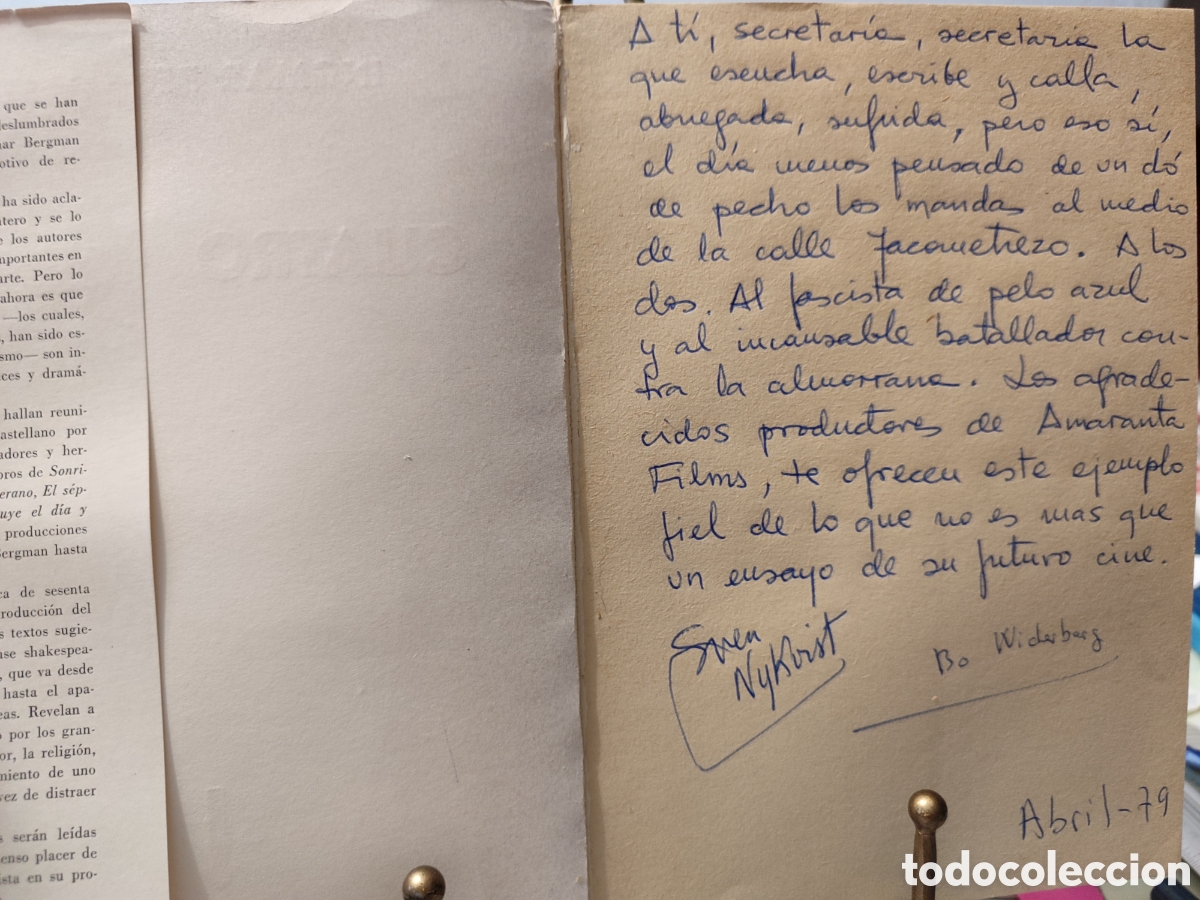 que se han
deslumbrados
mar Bergman
otivo de re-
ha sido acla-
ntero y se lo
e los autores
mportantes en
arte. Pero lo
ahora es que
—los cuales,
, han sido es-
smo— son in-
ces y dramá-
hallan reuni-
astellano por
adores y her-
oros de Sonri-
erano, El sép-
uye el día y
producciones
Bergman hasta
ca de sesenta
roducción del
s textos sugie-
nse shakespea-
, que va desde
hasta el apa-
eas. Revelan a
o por los gran-
or, la religión,
miento de uno
vez de distraer
s serán leídas
enso placer de
ista en su pro-
A tí, secretaria, secretaria la
que escucha, escribe y calla,
abnegada, sufrida, pero eso sí,
el día menos pensado de un dó
de pecho los mandas al medio
de la calle Jacometrezo. A los
dos. Al fascista de pelo azul
y al incansable batallador con-
tra la almorrana. Los agrade-
cidos productores de Amaranta
Films, te ofrecen este ejemplo
fiel de lo que no es mas que
un ensayo de su futuro cine.
Sven
Nykvist
Bo Widerberg
Abril-79
todocoleccion